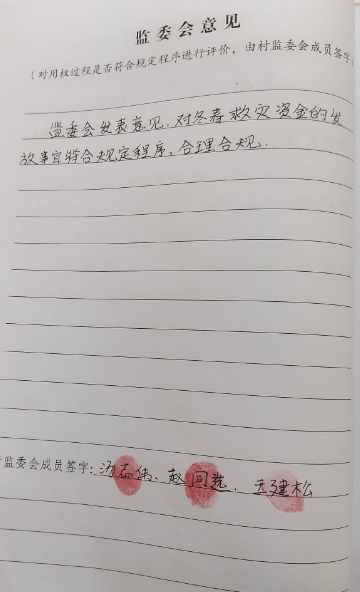 监委会意见
（对用权过程是否符合规定程序进行评价，由村监委会成员签字）
监委会发表意见，对冬春救灾资金的发
放事宜符合规定程序，合理合规．
监委会成员签字：汤志伟、赵同，王建松